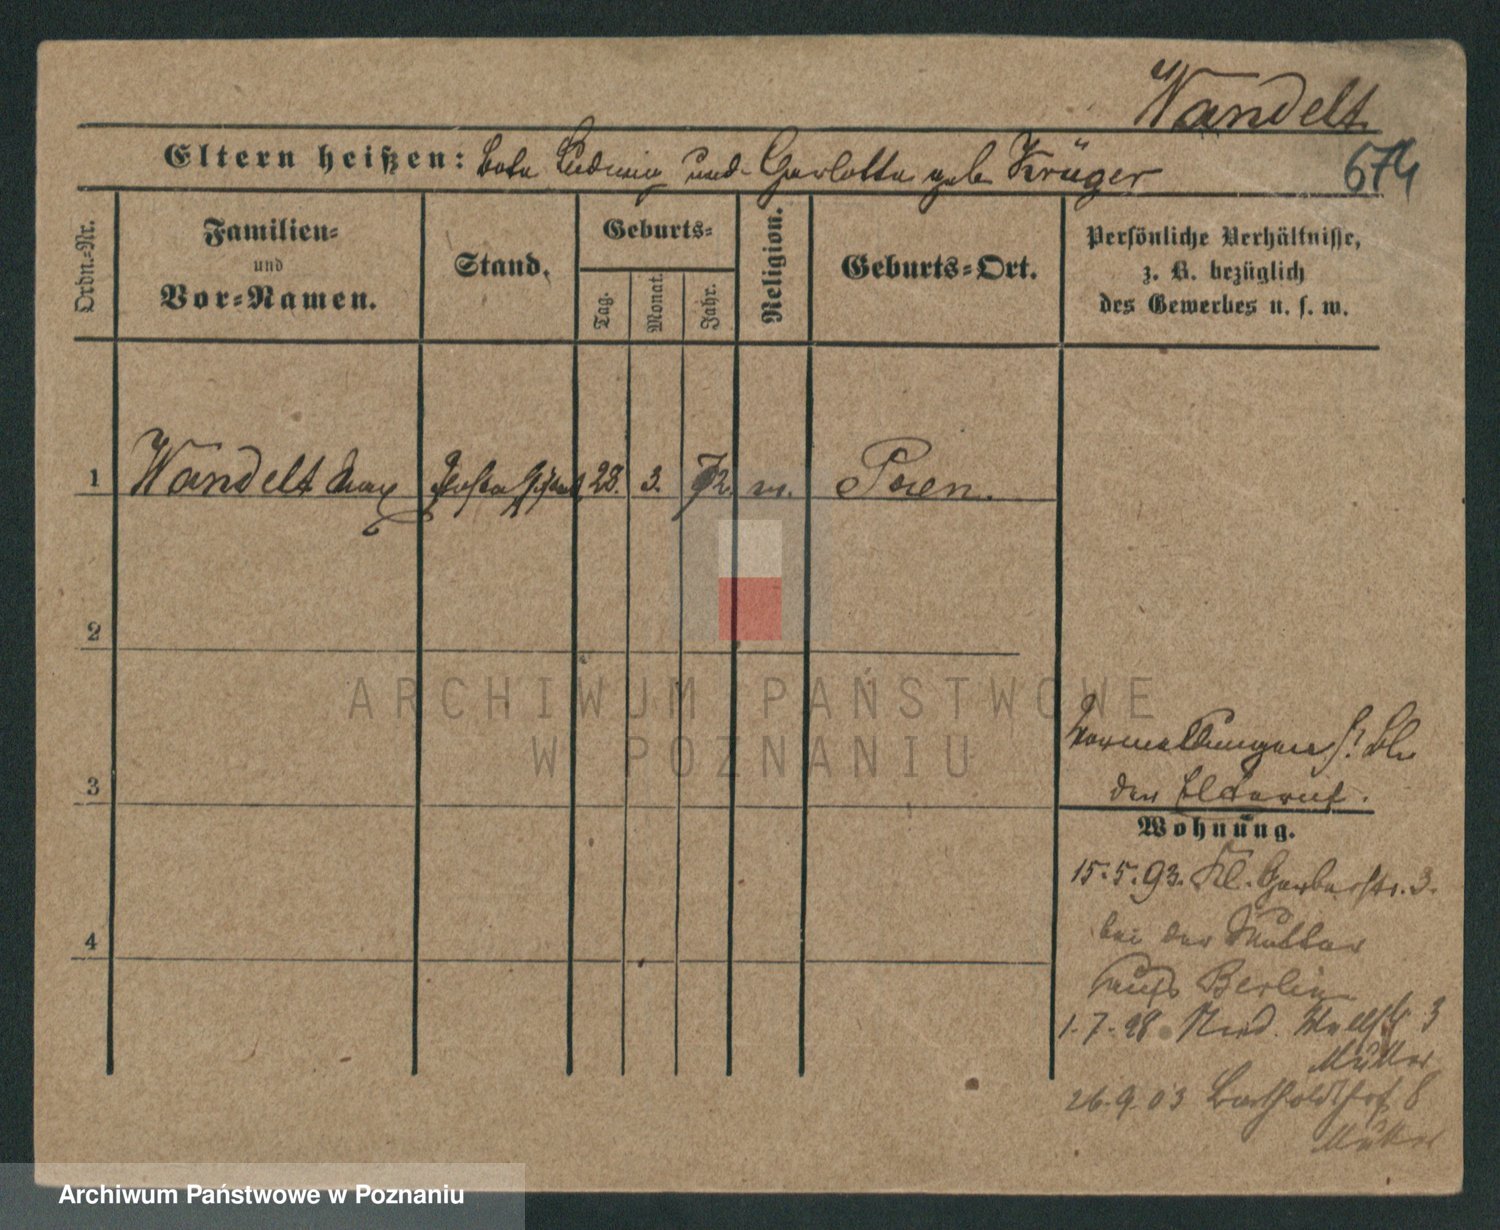 Wandelt
Eltern heißen: Bote Ludwig und Charlotte geb Krüger
674
Ordn.-Nr.
Familien-
und
Vor-Namen.
Stand.
Geburts-
Tag.
Monat.
Jahr.
Religion.
Geburts-Ort.
Persönliche Verhältnisse,
z. B. bezüglich
des Gewerbes u. s. w.
1 Wandelt Max 28. 3. 72. Posen.
2
3
4
ARCHIWUM PAŃSTWOWE
W POZNANIU
der
Wohnung.
15.5.93. Kl. Gerberstr. 3.
bei der Mutter
aus Berlin
1.7.98 Wallstr 3
Mutter
26.9.03 8
Mutter
Archiwum Państwowe w Poznaniu